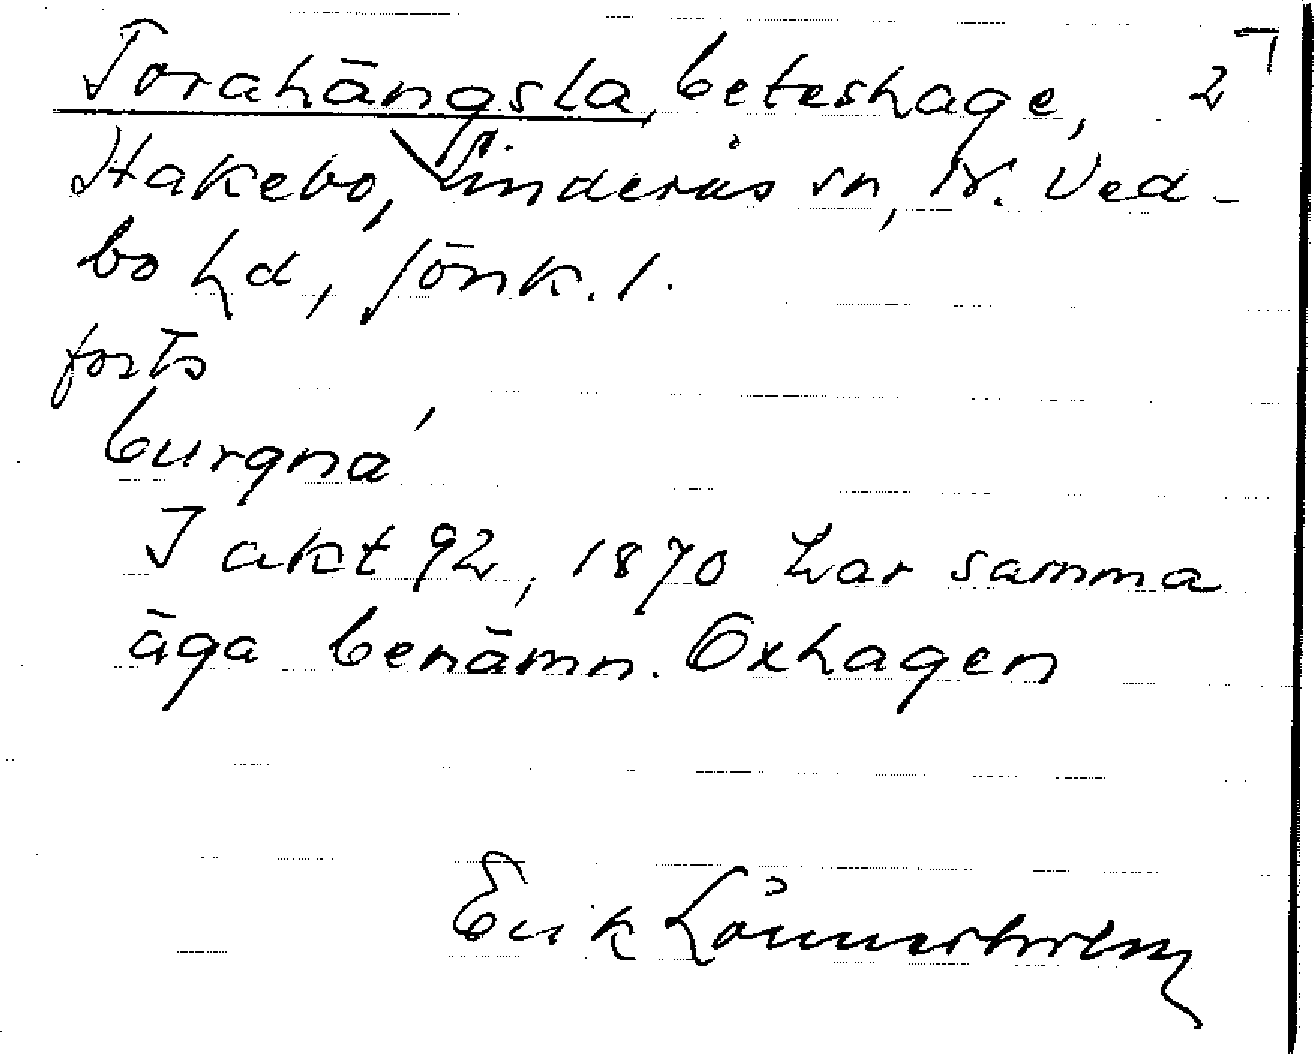 Torahängsla, beteshage, 2
Hakebo, Linderås sn, N. Ved-
bo hd, Jönk. l.
forts
burgna
I akt 92, 1870 har samma
äga benämn. Oxhagen
Erik Lönnerholm